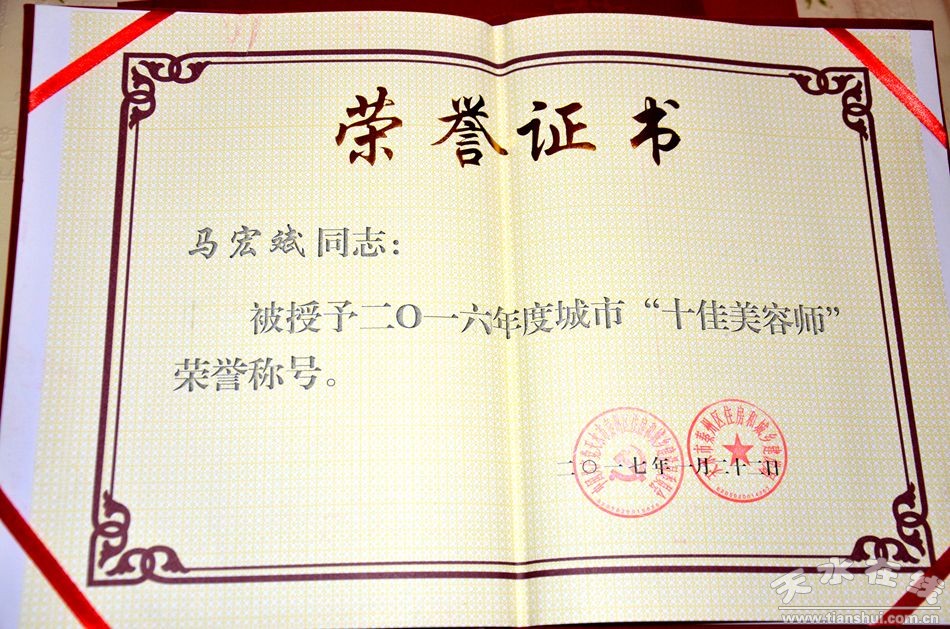 荣誉证书
马宏斌同志：
被授予二〇一六年度城市“十佳美容师”
荣誉称号。
二〇一七年一月二十二日
天水在线
www.tianshui.com.cn